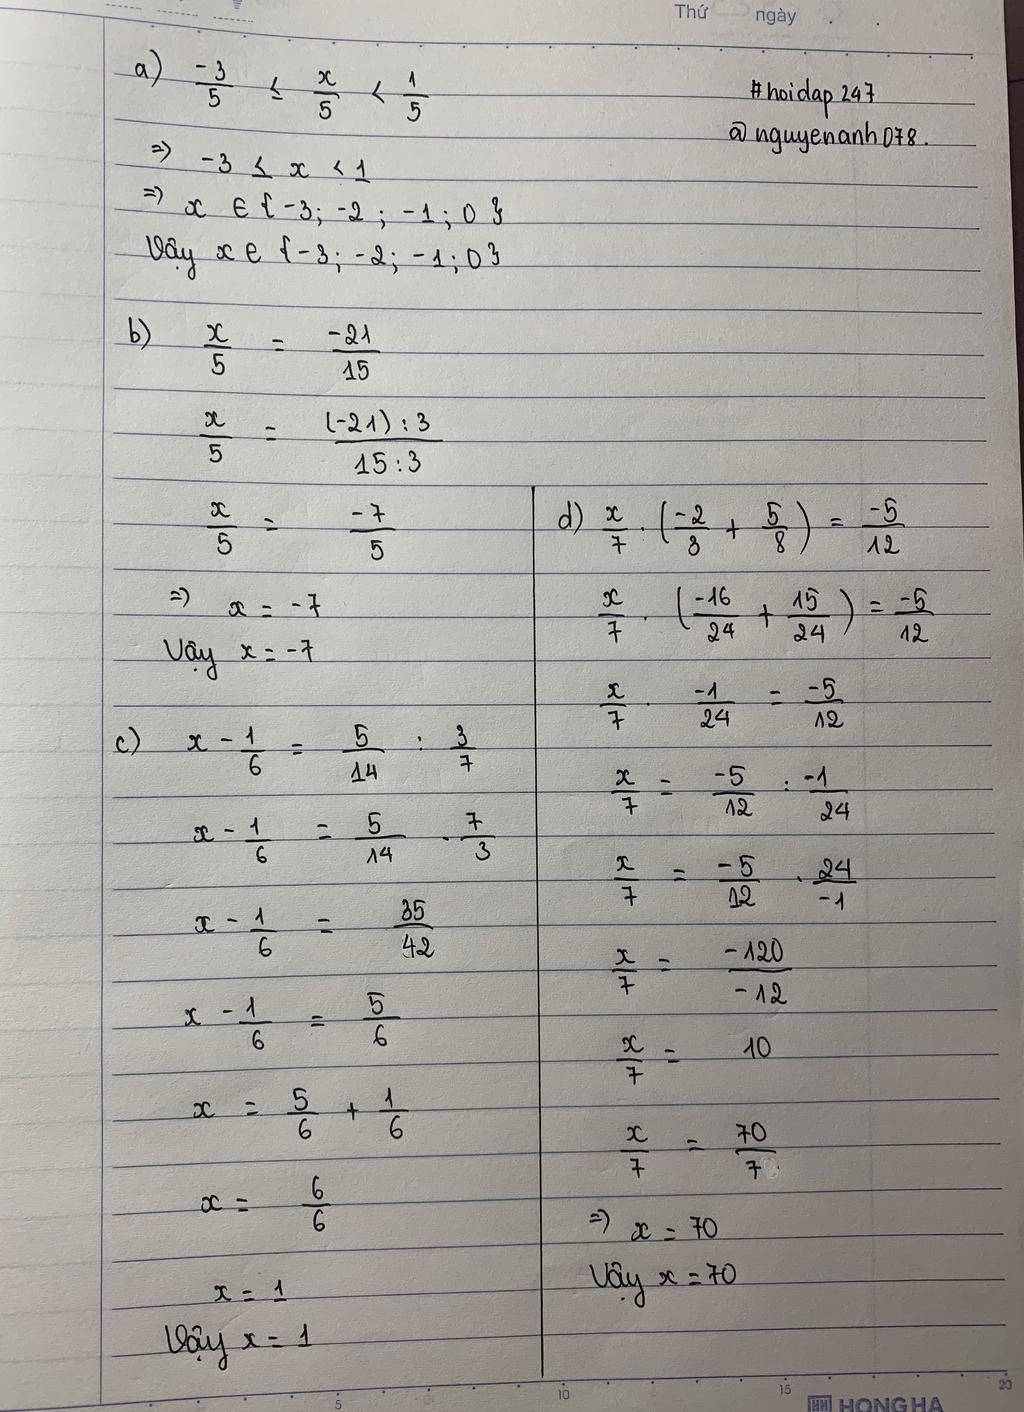 Thứ ngày . .
#hoidap247
@nguyenanh078.
a) -3/5 ≤ x/5 < 1/5
=> -3 ≤ x < 1
=> x ∈ {-3; -2; -1; 0}
Vậy x ∈ {-3; -2; -1; 0}
b) x/5 = -21/15
x/5 = (-21):3/15:3
x/5 = -7/5
=> x = -7
Vậy x = -7
c) x - 1/6 = 5/14 : 3/7
x - 1/6 = 5/14 . 7/3
x - 1/6 = 35/42
x - 1/6 = 5/6
x = 5/6 + 1/6
x = 6/6
x = 1
Vậy x = 1
d) x/7 . (-2/3 + 5/8) = -5/12
x/7 . (-16/24 + 15/24) = -5/12
x/7 . -1/24 = -5/12
x/7 = -5/12 : -1/24
x/7 = -5/12 . 24/-1
x/7 = -120/-12
x/7 = 10
x/7 = 70/7
=> x = 70
Vậy x = 70
5 10 15 20
HH HONG HA